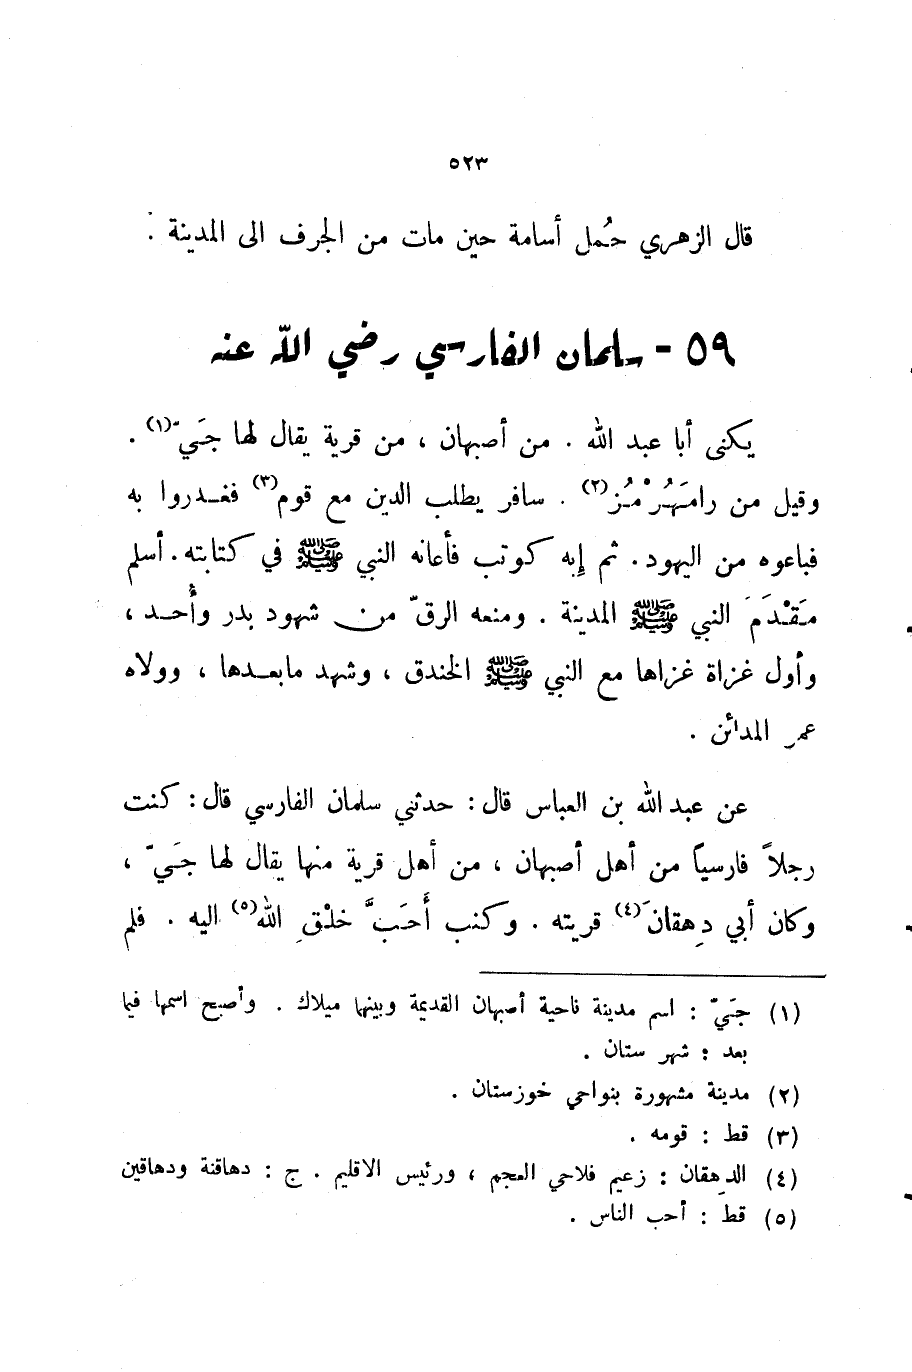 ٥٢٣
قال الزهري حُمل أسامة حين مات من الجرف الى المدينة .
٥٩ - سلمان الفارسي رضي الله عنه
يكنى أبا عبد الله . من أصبهان ، من قرية يقال لها جَيّ(١) .
وقيل من رامَهُرْمُز(٢) . سافر يطلب الدين مع قوم(٣) فغدروا به
فباعوه من اليهود. ثم إِبه كوتب فأعانه النبي ﷺ في كتابته. أسلم
مَقْدَمَ النبي ﷺ المدينة . ومنعه الرقّ من شهود بدر وأُحد ،
وأول غزاة غزاها مع النبي ﷺ الخندق ، وشهد مابعدها ، وولاه
عمر المدائن .
عن عبد الله بن العباس قال: حدثني سلمان الفارسي قال: كنت
رجلاً فارسياً من أهل أصبهان ، من أهل قرية منها يقال لها جَيّ ،
وكان أبي دِهقانَ(٤) قريته . وكنب أَحَبَّ خلْقِ الله(٥) اليه . فلم
(١) جَيّ : اسم مدينة ناحية أصبهان القديمة وبينها ميلاك . وأصبح اسمها فيا
بعد : شهر ستان .
(٢) مدينة مشهورة بنواحي خوزستان .
(٣) قط : قومه .
(٤) الدِهقان : زعيم فلاحي العجم ، ورئيس الاقليم . ج : دهاقنة ودهاقين
(٥) قط : أحب الناس .